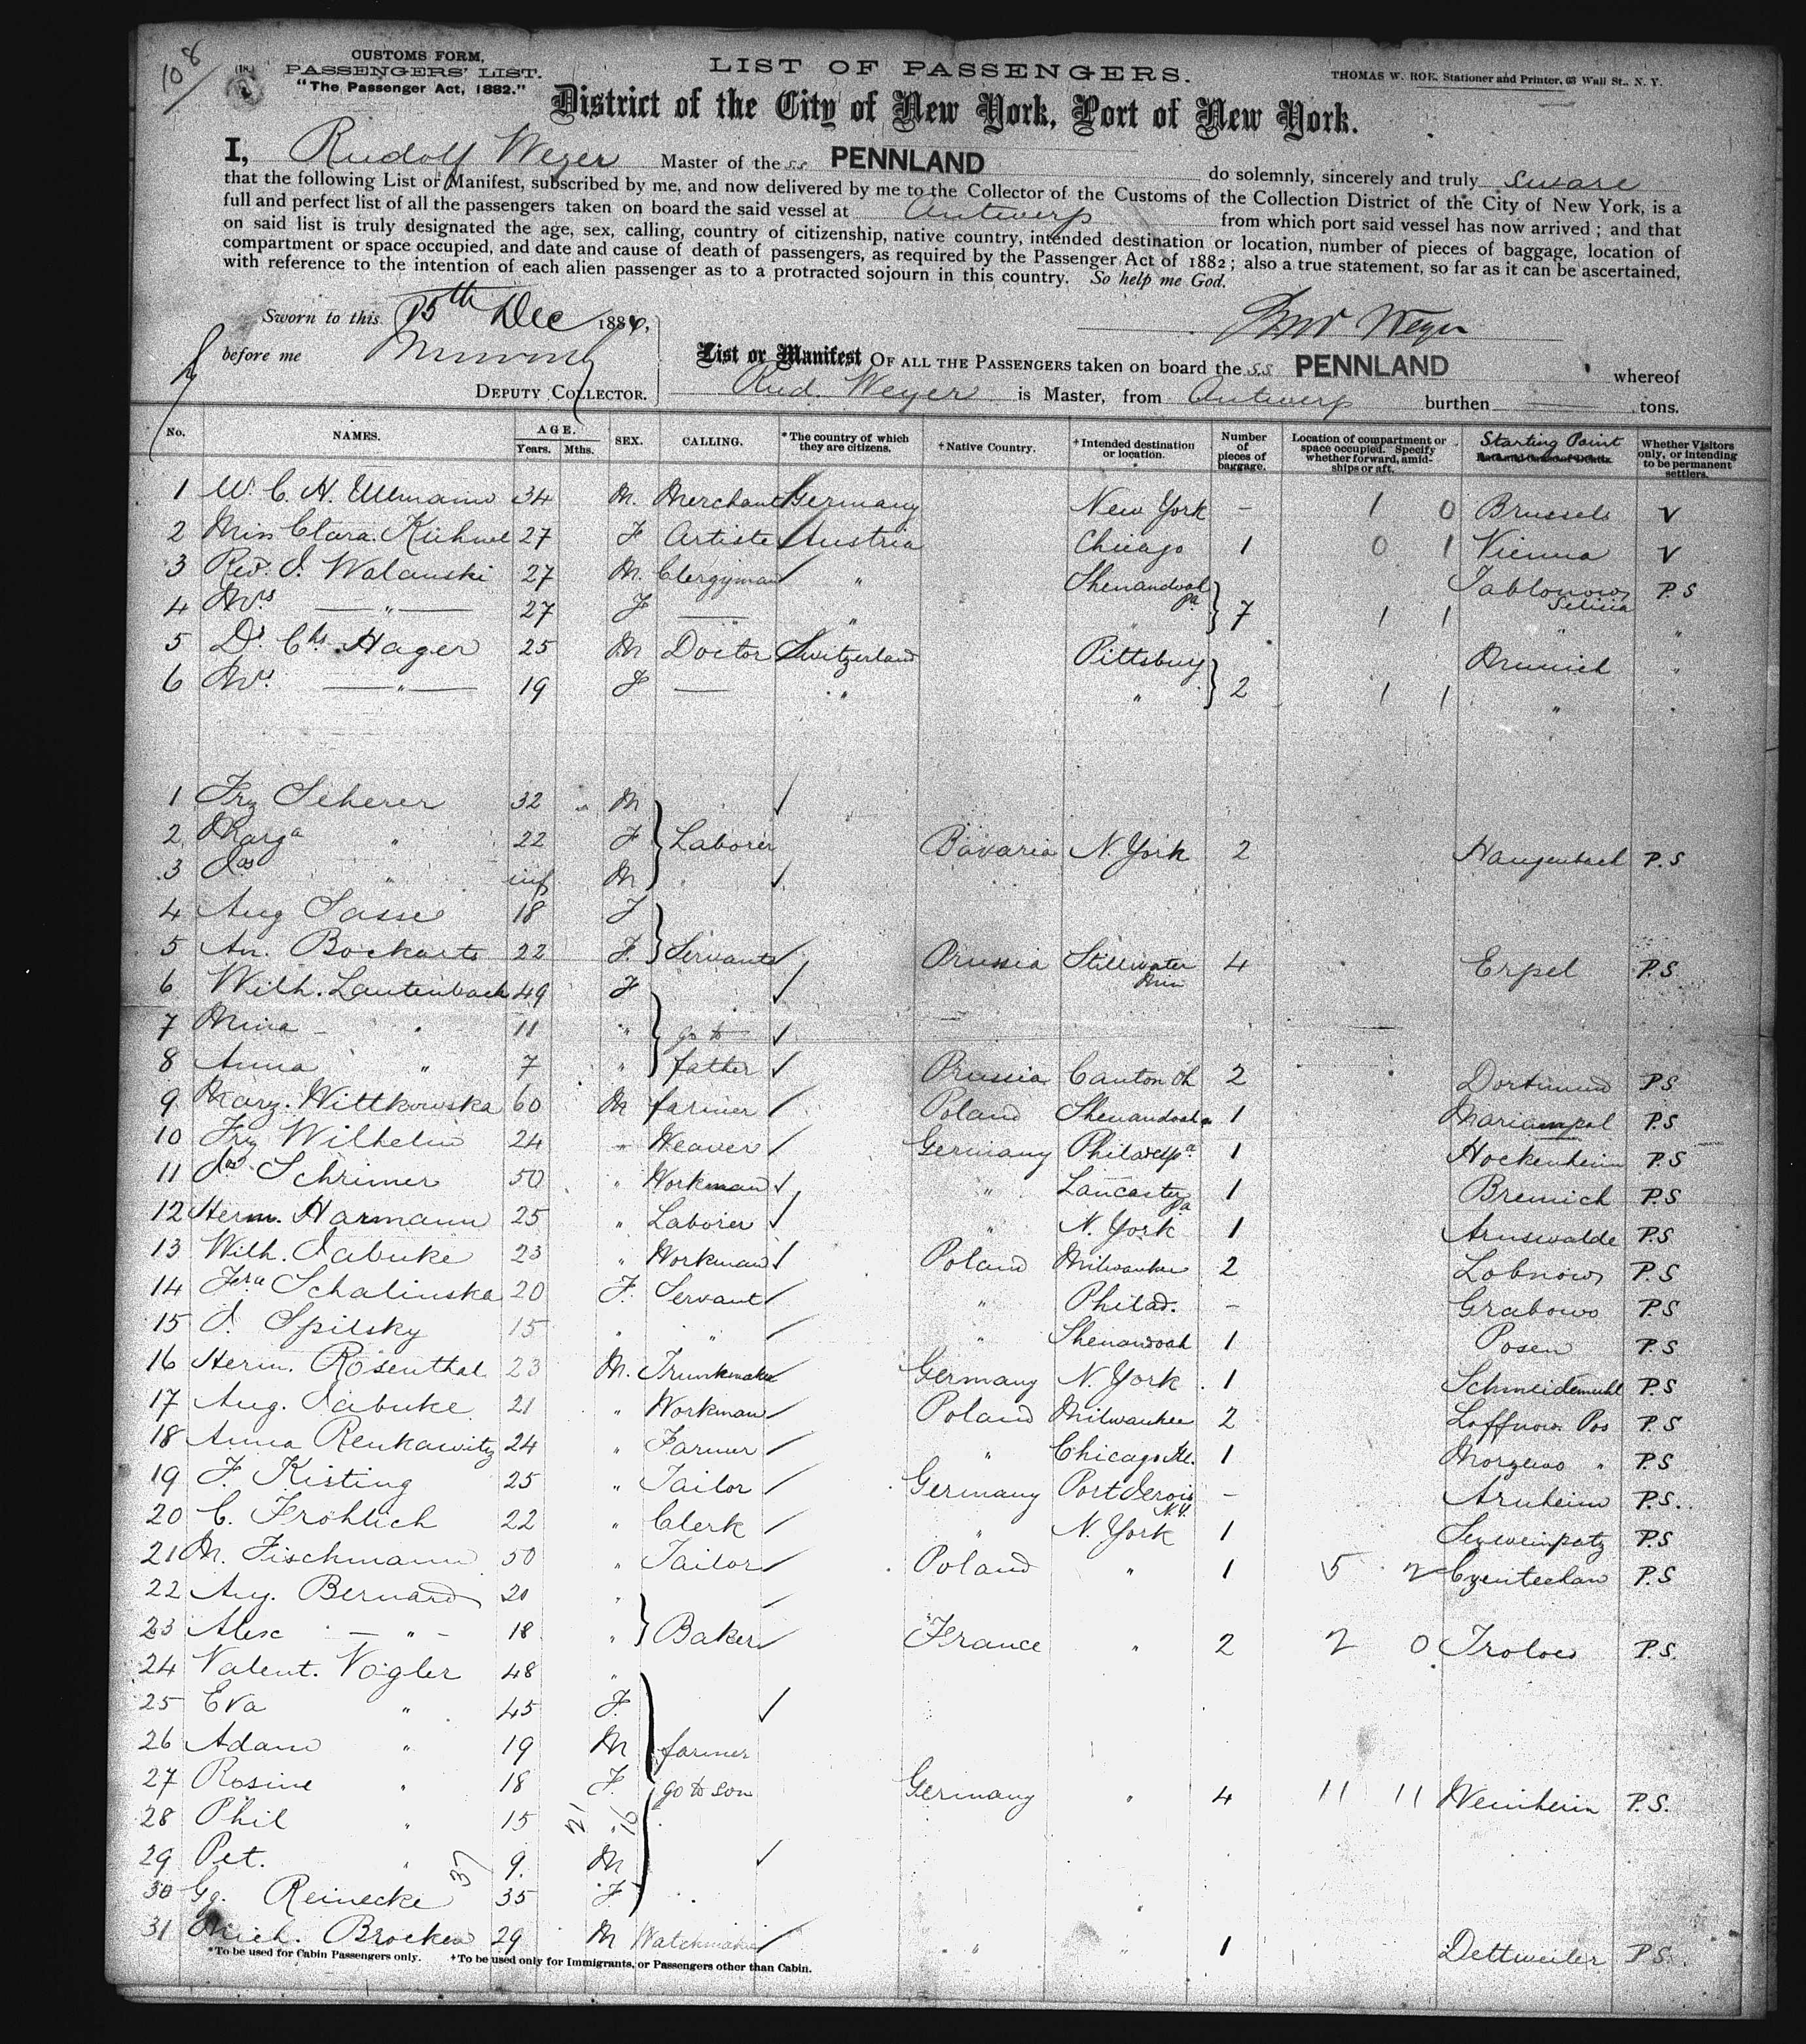 108
CUSTOMS FORM,
PASSENGERS' LIST.
"The Passenger Act, 1882."
LIST OF PASSENGERS.
THOMAS W. ROE, Stationer and Printer, 63 Wall St., N. Y.
District of the City of New York, Port of New York.
I, Rudolf Weyer Master of the SS PENNLAND do solemnly, sincerely and truly swear
that the following List or Manifest, subscribed by me, and now delivered by me to the Collector of the Customs of the Collection District of the City of New York, is a
full and perfect list of all the passengers taken on board the said vessel at Antwerp from which port said vessel has now arrived; and that
on said list is truly designated the age, sex, calling, country of citizenship, native country, intended destination or location, number of pieces of baggage, location of
compartment or space occupied, and date and cause of death of passengers, as required by the Passenger Act of 1882; also a true statement, so far as it can be ascertained,
with reference to the intention of each alien passenger as to a protracted sojourn in this country. So help me God.
Sworn to this 15th Dec 188
Weyer
before me
DEPUTY COLLECTOR.
List or Manifest OF ALL THE PASSENGERS taken on board the SS PENNLAND whereof
Rud. Weyer is Master, from Antwerp burthen — tons.
No. NAMES. AGE. Years. Mths. SEX. CALLING. *The country of which they are citizens. †Native Country. †Intended destination or location. Number of pieces of baggage. Location of compartment or space occupied. Specify whether forward, amidships or aft. Starting Point Whether Visitors only, or intending to be permanent settlers.
1 W. C. H. Ullmann 34 M. Merchant Germany New York - 1 0 Brussels V
2 Miss Clara Kuhnel 27 F Artiste Austria Chicago 1 0 1 Vienna V
3 Rev. I. Wolanski 27 M. Clergyman " Shenandoah Pa Jablonow P S
4 Mrs — " — 27 F — " " 7 1 1 " "
5 Dr. Chs. Hager 25 M Doctor Switzerland Pittsburg Munich "
6 Mrs — " — 19 F — " " 2 1 1 " "
1 Frz Scherer 32 M
2 Marga " 22 F Laborer Bavaria N. York 2 Haugenbach P.S
3 Jos " inf M
4 Aug Sasse 18 F
5 An. Bockarts 22 F. Servants Prussia Stillwater Min 4 Erpel P.S.
6 Wilh. Lautenbach 49 F
7 Mina - " 11 " go to
8 Anna " 7 " father Prussia Canton Oh 2 Dortmund P.S
9 Marz. Wittkowska 60 M farmer Poland Shenandoah 1 Mariampol P.S
10 Frz Wilhelm 24 " Weaver Germany Philadelpa 1 Hockenheim P.S
11 Jos Schrimer 50 " Workman " Lancaster Pa 1 Bremich P.S
12 Herm. Harmann 25 " Laborer " N. York 1 Arnswalde P.S
13 Wilh. Jabuke 23 " Workman Poland Milwaukee 2 Lobnow P.S
14 Schalinska 20 F. Servant " Philad. - Grabowo P.S
15 J. Spilsky 15 " " " Shenandoah 1 Posen P.S
16 Herm. Rosenthal 23 M. Trunkmaker Germany N. York 1 Schneidemuhl P.S
17 Aug. Jabuke 21 " Workman Poland Milwaukee 2 Loffnow Pos P.S
18 Anna Renkawitz 24 " Farmer " Chicago Ill. 1 Morzewo " P.S
19 F. Kisting 25 " Tailor Germany Port Jervis N.Y. - Arnheim P.S.
20 C. Frohlich 22 " Clerk " N. York 1 P.S
21 M. Fischmann 50 " Tailor Poland " 1 5 2 P.S
22 Aug. Bernard 20 "
23 Alex — " - 18 " Baker France " 2 2 0 P.S.
24 Valent. Vogler 48 "
25 Eva " 45 F.
26 Adam " 19 M farmer
27 Rosine " 18 F. go to son Germany " 4 11 11 Weinheim P.S.
28 Phil " 15 21 " 16
29 Pet. " 9. M
30 Gg. Reinecke 37 35 F "
31 Mich. Brocker 29 M Watchmaker " " 1 Dettweiler P.S.
*To be used for Cabin Passengers only. †To be used only for Immigrants, or Passengers other than Cabin.